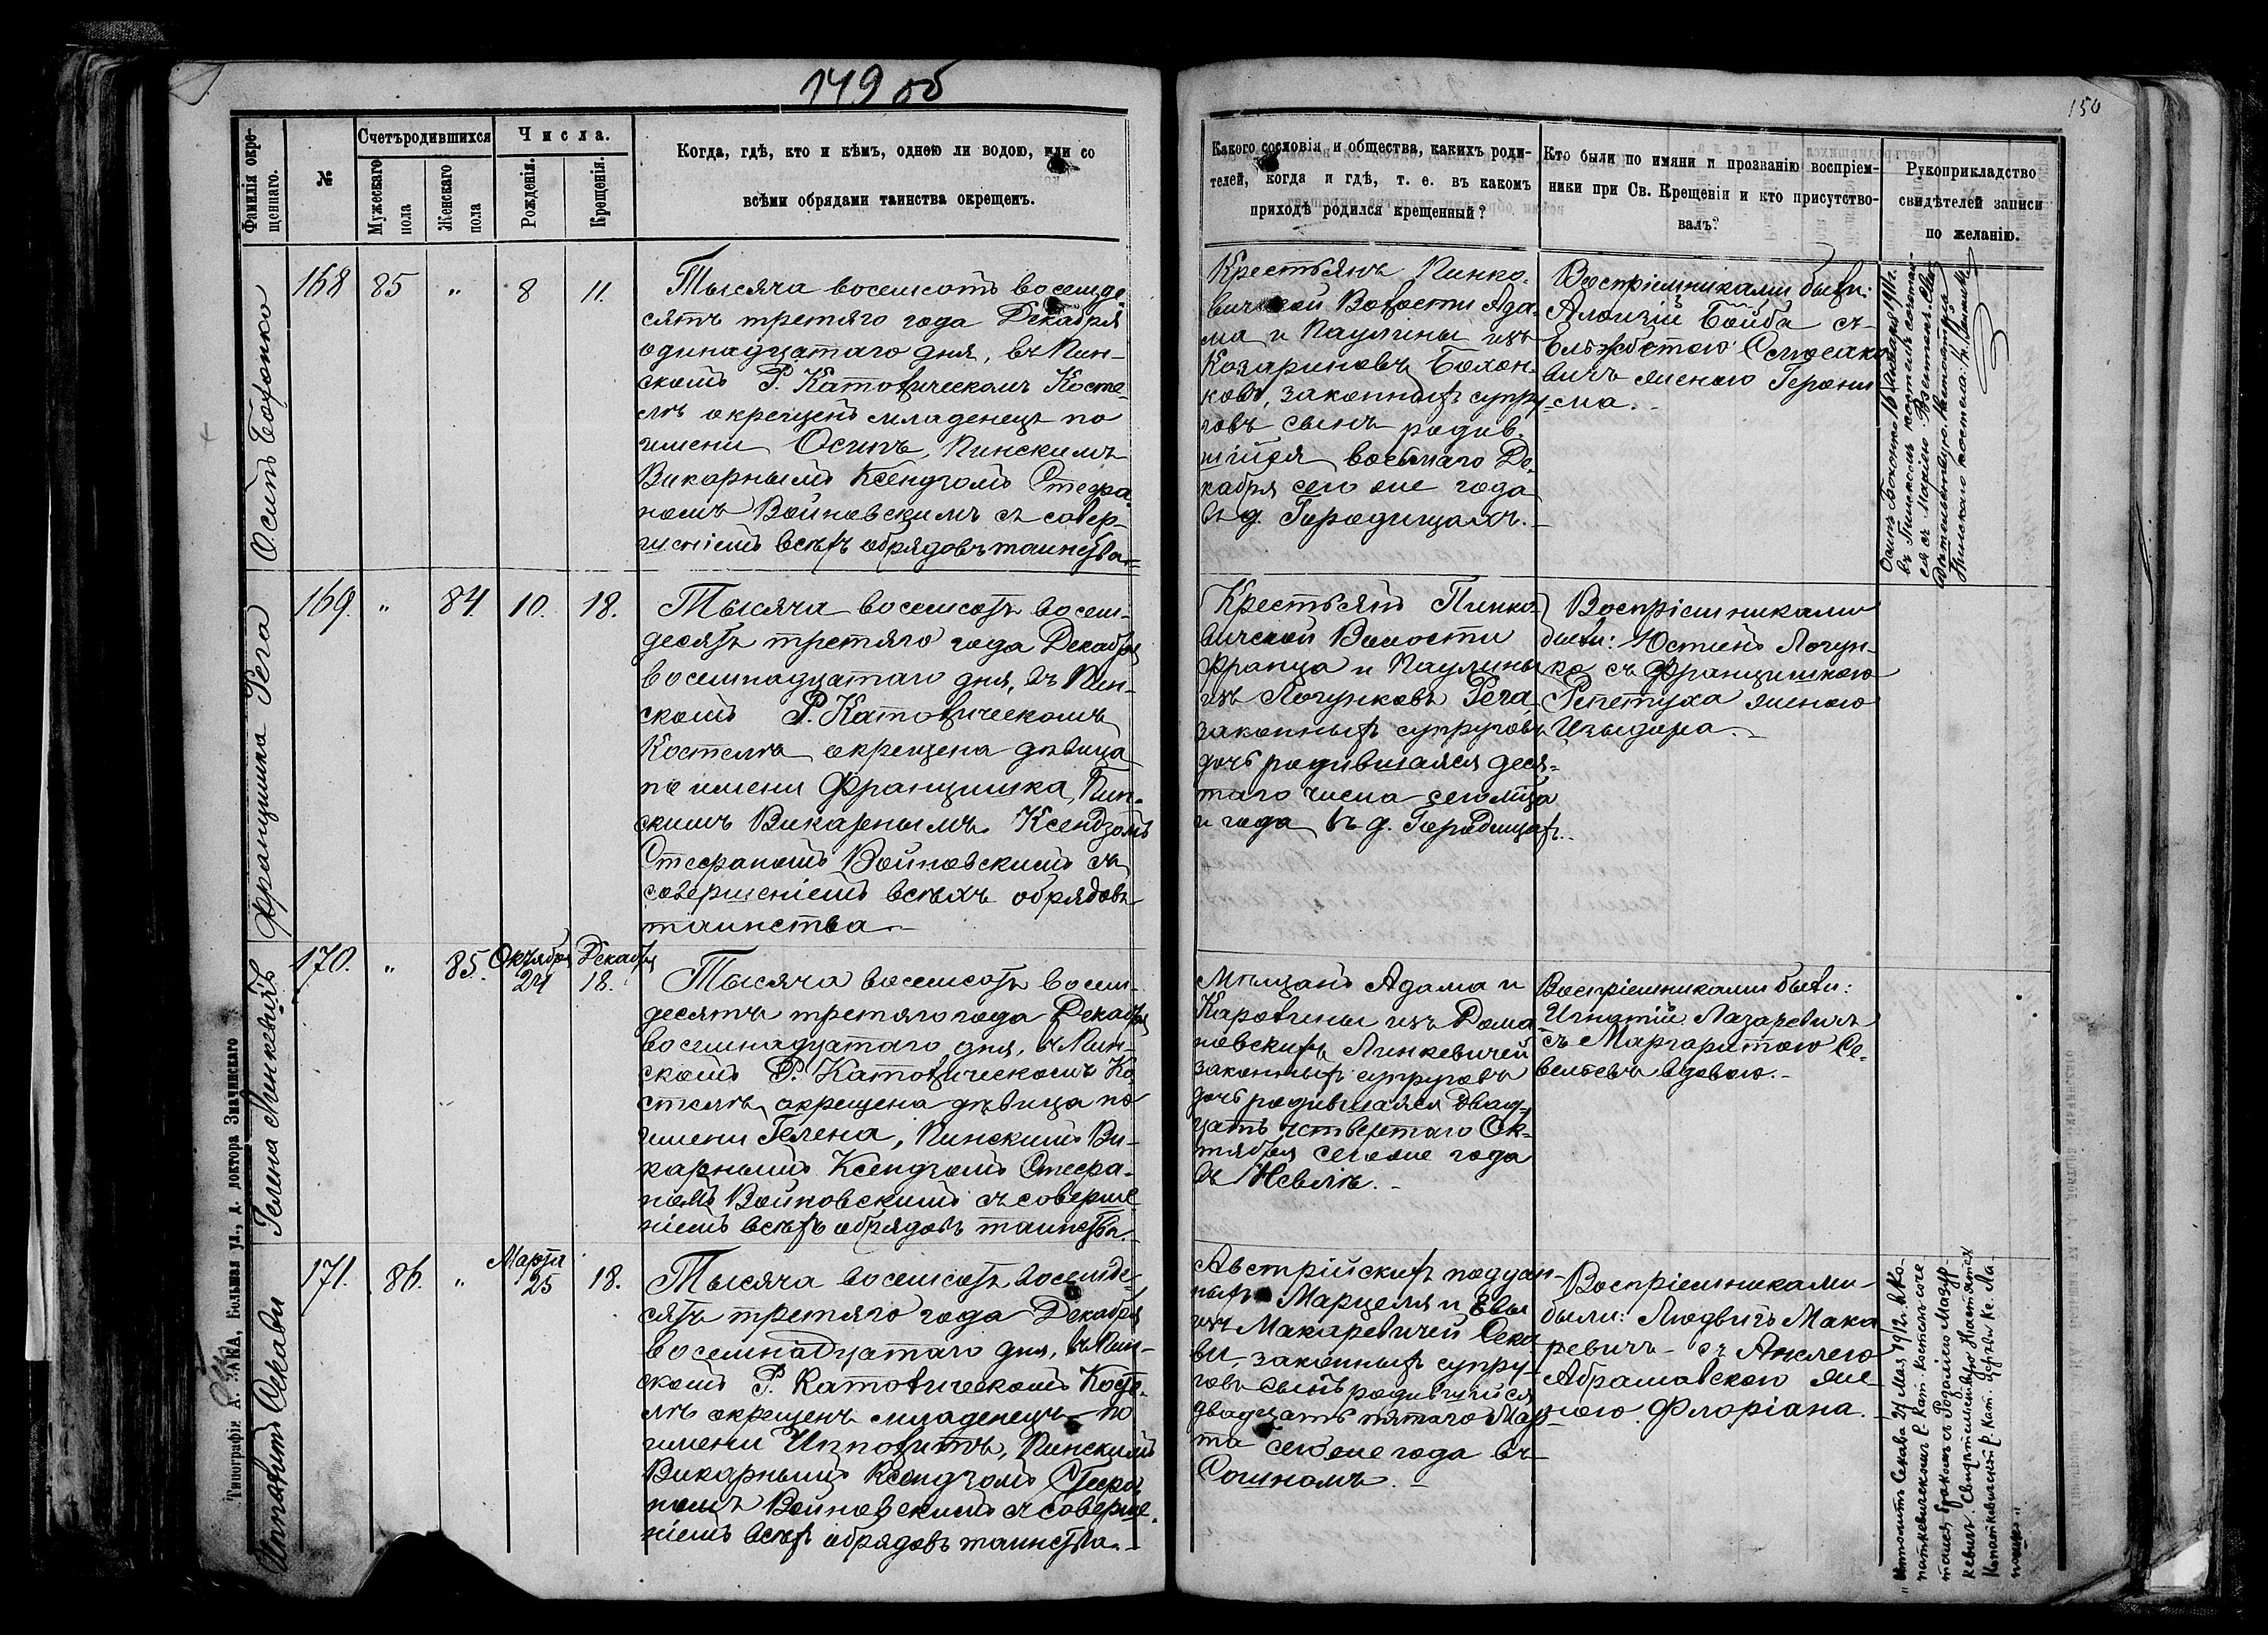 149 об
150
Фамилія окре-
щеннаго.
№
Счетъ родившихся
Мужескаго
пола
Женскаго
пола
Числа.
Рожденія.
Крещенія.
Когда, гдѣ, кто и кѣмъ, однею ли водою, или со
всѣми обрядами таинства окрещенъ.
Какого сословія и общества, какихъ роди-
телей, когда и гдѣ, т. е. въ какомъ
приходѣ родился крещенный?
Кто были по имяни и прозванію воспріем-
ники при Св. Крещеніи и кто присутство-
валъ?
Рукоприкладство
свидѣтелей записи
по желанію.
Осипъ Бохонко
168
85
"
8
11.
Тысяча восемсотъ восемде-
сятъ третяго года Декабря
одинадцатаго дня, въ Пин-
скомъ Р. Католическомъ Косте-
лѣ окрещенъ младенецъ по
имени Осипъ, Пинскимъ
Викарнымъ Ксендзомъ Стефа-
номъ Войновскимъ съ совер-
шеніемъ всѣхъ обрядовъ таинства.
Крестьянъ Пинко-
вичской Волости Ада-
ма и Паулины изъ
Козариновъ Бохон-
ковъ, законныхъ супру-
говъ сынъ родив-
шійся восьмаго Де-
кабря сего же года
въ д. Городищахъ.
Воспріемниками были:
Алоизій Бойба съ
Ельжбетою
женою Герони-
ма.
Осипъ Бохонко 16 Января 1911 г.
въ Пинскомъ костелѣ сочетал-
ся съ Маріею
Пинскаго костела:
Францишка Рега
169.
"
84.
10.
18.
Тысяча восемсотъ восем-
десятъ третяго года Декабря
восемнадцатаго дня, въ Пин-
скомъ Р. Католическомъ
Костелѣ окрещена дѣвица
по имени Францишка, Пин-
скимъ Викарнымъ Ксендзомъ
Стефаномъ Войновскимъ съ
совершеніемъ всѣхъ обрядовъ
таинства.
Крестьянъ Пинко-
вичской Волости
Франца и Паулины
изъ Логушковъ Рега,
законныхъ супруговъ
дочь родившаяся деся-
таго числа сего м-ца
и года въ д. Городищахъ.
Воспріемниками
были: Юстинъ
съ Францишкою
женою
Изыдора.
Гелена Линкевичъ
170.
"
85.
Октября
24
Декабря
18.
Тысяча восемсотъ восем-
десятъ третяго года Декабря
восемнадцатаго дня, въ Пин-
скомъ Р. Католическомъ Ко-
стелѣ окрещена дѣвица по
имени Гелена, Пинскимъ Ви-
карнымъ Ксендзомъ Стефа-
номъ Войновскимъ съ соверше-
ніемъ всѣхъ обрядовъ таинства.
Мѣщанъ Адама и
Каролины изъ Дома-
новскихъ Линкевичей
законныхъ супруговъ
дочь родившаяся двад-
цать четвертаго Ок-
тября сего же года
въ Невлѣ.
Воспріемниками были:
Игнатій Лазаревичъ
съ Маргаритою
вдовою.
Ипполитъ Секави
171.
86.
"
Марта
25
18.
Тысяча восемсотъ восемде-
сятъ третяго года Декабря
восемнадцатаго дня, въ Пин-
скомъ Р. Католическомъ Косте-
лѣ окрещенъ младенецъ по
имени Ипполитъ, Пинскимъ
Викарнымъ Ксендзомъ Стефа-
номъ Войновскимъ съ соверше-
ніемъ всѣхъ обрядовъ таинства.
Австрійскихъ поддан-
ныхъ Марцеля и Евы
изъ Макаревичей Сека-
ви, законныхъ супру-
говъ сынъ родившійся
двадцать пятаго Мар-
та сего же года въ
Сошномъ.
Воспріемниками
были: Людвигъ Мака-
ревичъ съ Анелею
Абрамовскою же-
ною Флоріана.
Ипполитъ Секава 27 Мая 1912 г. въ Ко-
паткевичскомъ Р. Кат. Костелѣ соче-
тался бракомъ съ Розаліею Мазур-
кевичъ. Свидѣтельствую Настоятель
Копаткевичской Р. Кат. церкви Кс.
Типографія А. ЗАКА, Большая ул., д. доктора Значинскаго